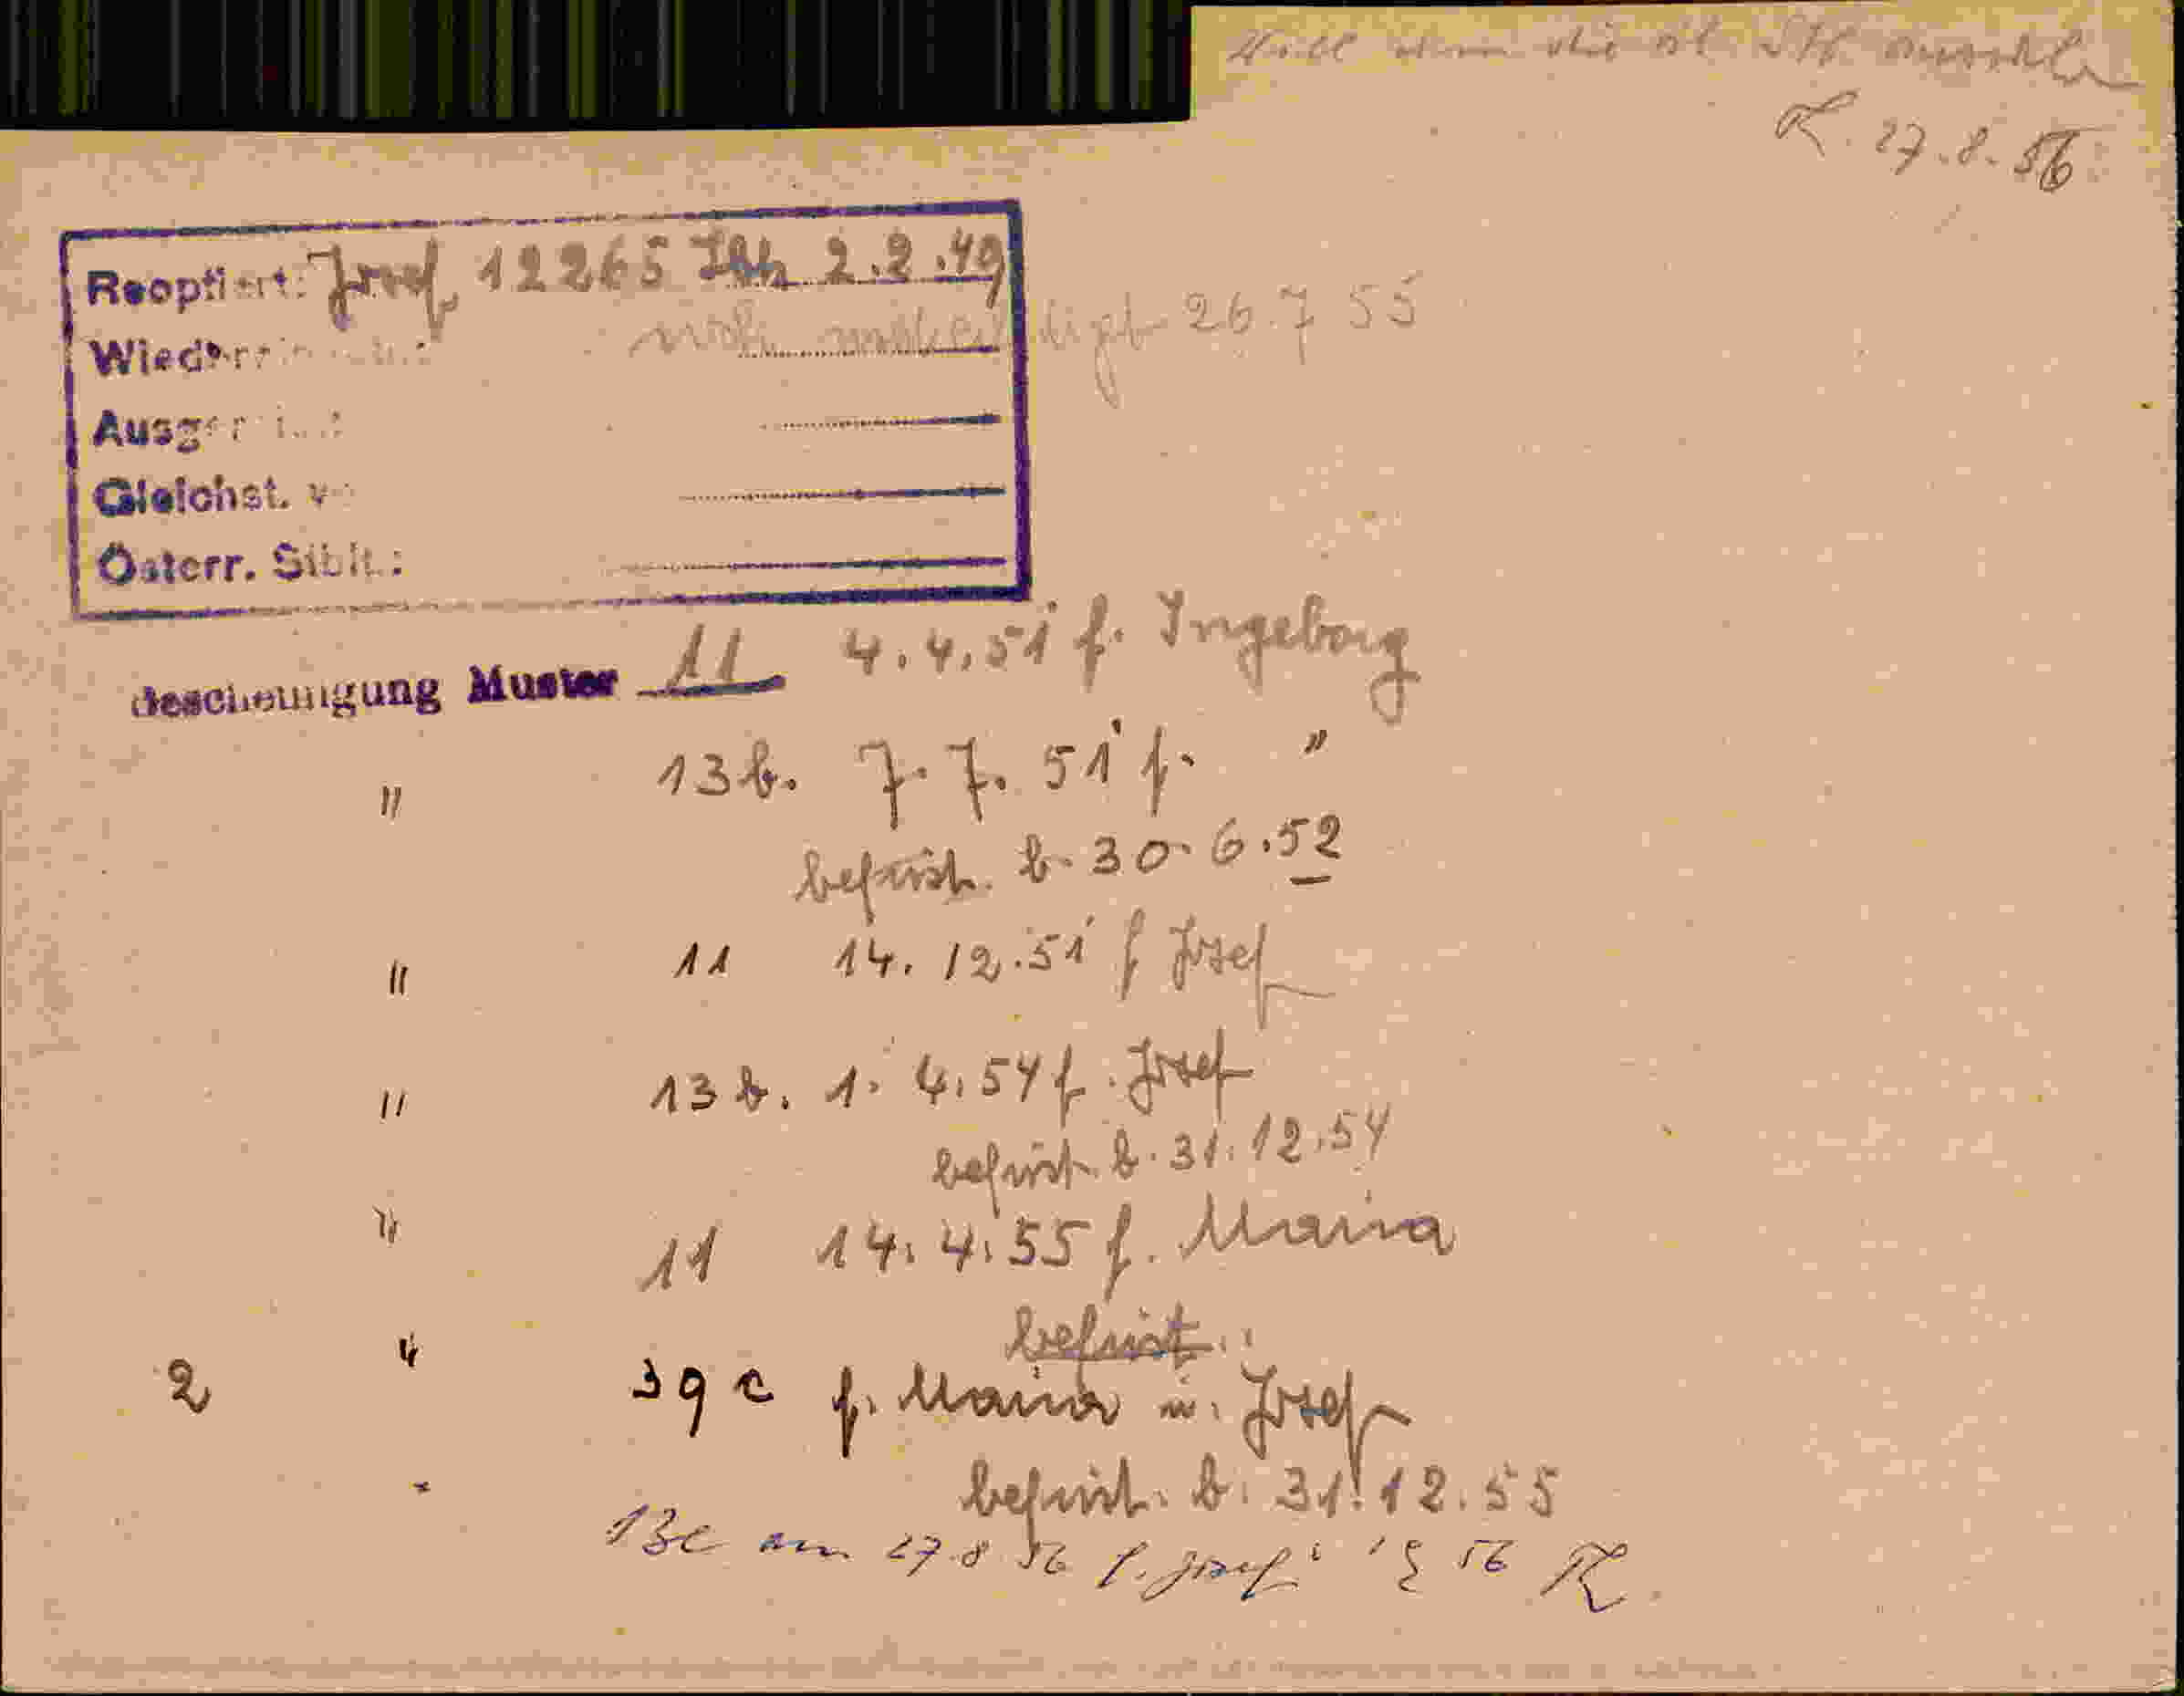 Will
K. 27.8.56
Reoptiert: Josef 12265 2.2.49
noch unerledigt 26.7 55
Gleichst.
Österr. Stblt.:
Bescheinigung Muster 11 4.4.51 f. Ingeborg
" 13b. 7.7.51 f. "
befrist. b. 30.6.52
" 11 14.12.51 f Josef
" 13b. 1.4.54 f. Josef
befrist. b. 31.12.54
" 11 14.4.55 f. Maria
befrist.
2 " 39c f. Maria u. Josef
befrist. b. 31.12.55
" 13c am 27.8.56 f. Josef 56 K